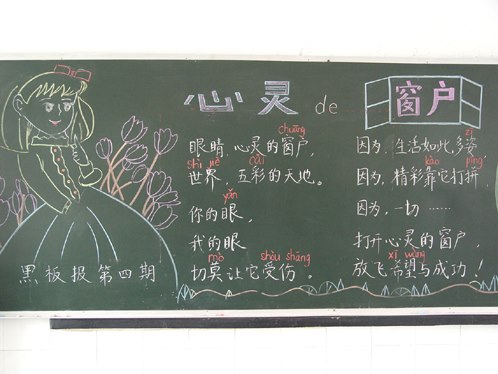 心灵de窗户
chuāng
眼睛,心灵的窗户,
shì jiè cǎi
世界,五彩的天地。
yǎn
你的眼,
我的眼
mò shòu shāng
切莫让它受伤。
zī
因为,生活如此多姿
kào pīng
因为,精彩靠它打拼,
因为,一切……
打开心灵的窗户,
xī wàng
放飞希望与成功!
黑板报第四期